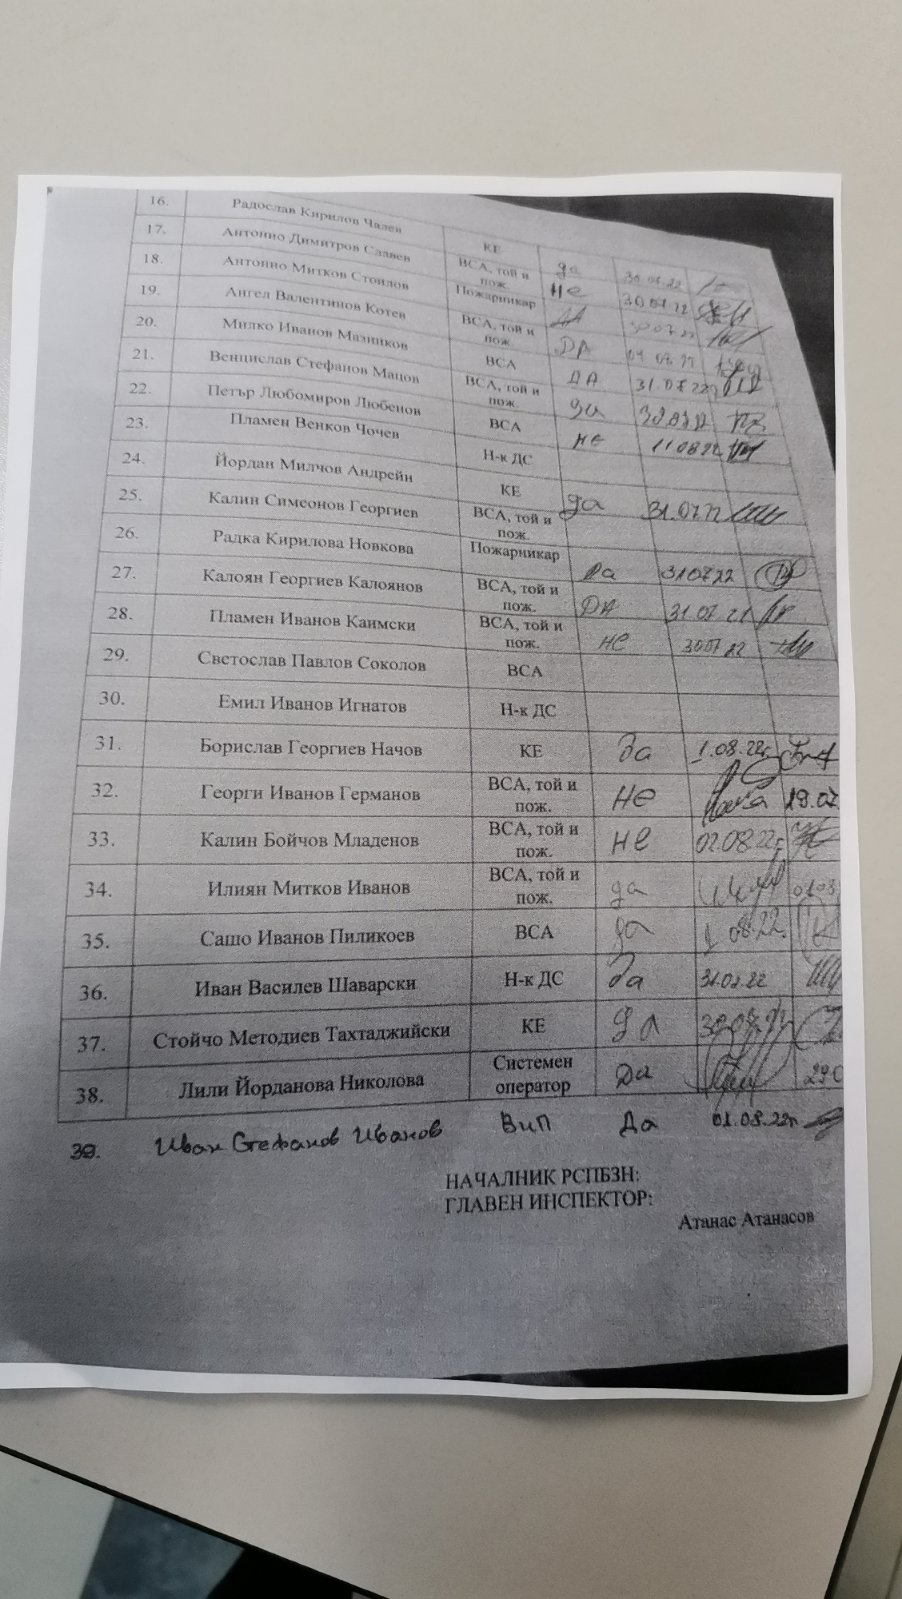 16. Радослав Кирилов Чален КЕ да 30.07.22
17. Антонио Димитров Славен ВСА, той и пож. Не 30.07.22
18. Антонио Митков Стоилов Пожарникар
19. Ангел Валентинов Котев ВСА, той и пож. ДА
20. Милко Иванов Мазников ВСА ДА 31.07.22
21. Венцислав Стефанов Мацов ВСА, той и пож. да
22. Петър Любомиров Любенов ВСА не 11.08.22
23. Пламен Венков Чочев Н-к ДС
24. Йордан Милчов Андрейн КЕ да 31.07.22
25. Калин Симеонов Георгиев ВСА, той и пож.
26. Радка Кирилова Новкова Пожарникар Да 31.07.22
27. Калоян Георгиев Калоянов ВСА, той и пож. ДА
28. Пламен Иванов Каимски ВСА, той и пож. не 30.07.22
29. Светослав Павлов Соколов ВСА
30. Емил Иванов Игнатов Н-к ДС
31. Борислав Георгиев Начов КЕ Да 1.08.22г.
32. Георги Иванов Германов ВСА, той и пож. Не 19.07
33. Калин Бойчов Младенов ВСА, той и пож. Не 02.08.22г.
34. Илиян Митков Иванов ВСА, той и пож. да
35. Сашо Иванов Пиликоев ВСА да
36. Иван Василев Шаварски Н-к ДС Да 31.07.22
37. Стойчо Методиев Тахтаджийски КЕ Да
38. Лили Йорданова Николова Системен оператор Да
39. Иван Стефанов Иванов ВиП Да 01.08.22г
НАЧАЛНИК РСПБЗН:
ГЛАВЕН ИНСПЕКТОР:
Атанас Атанасов